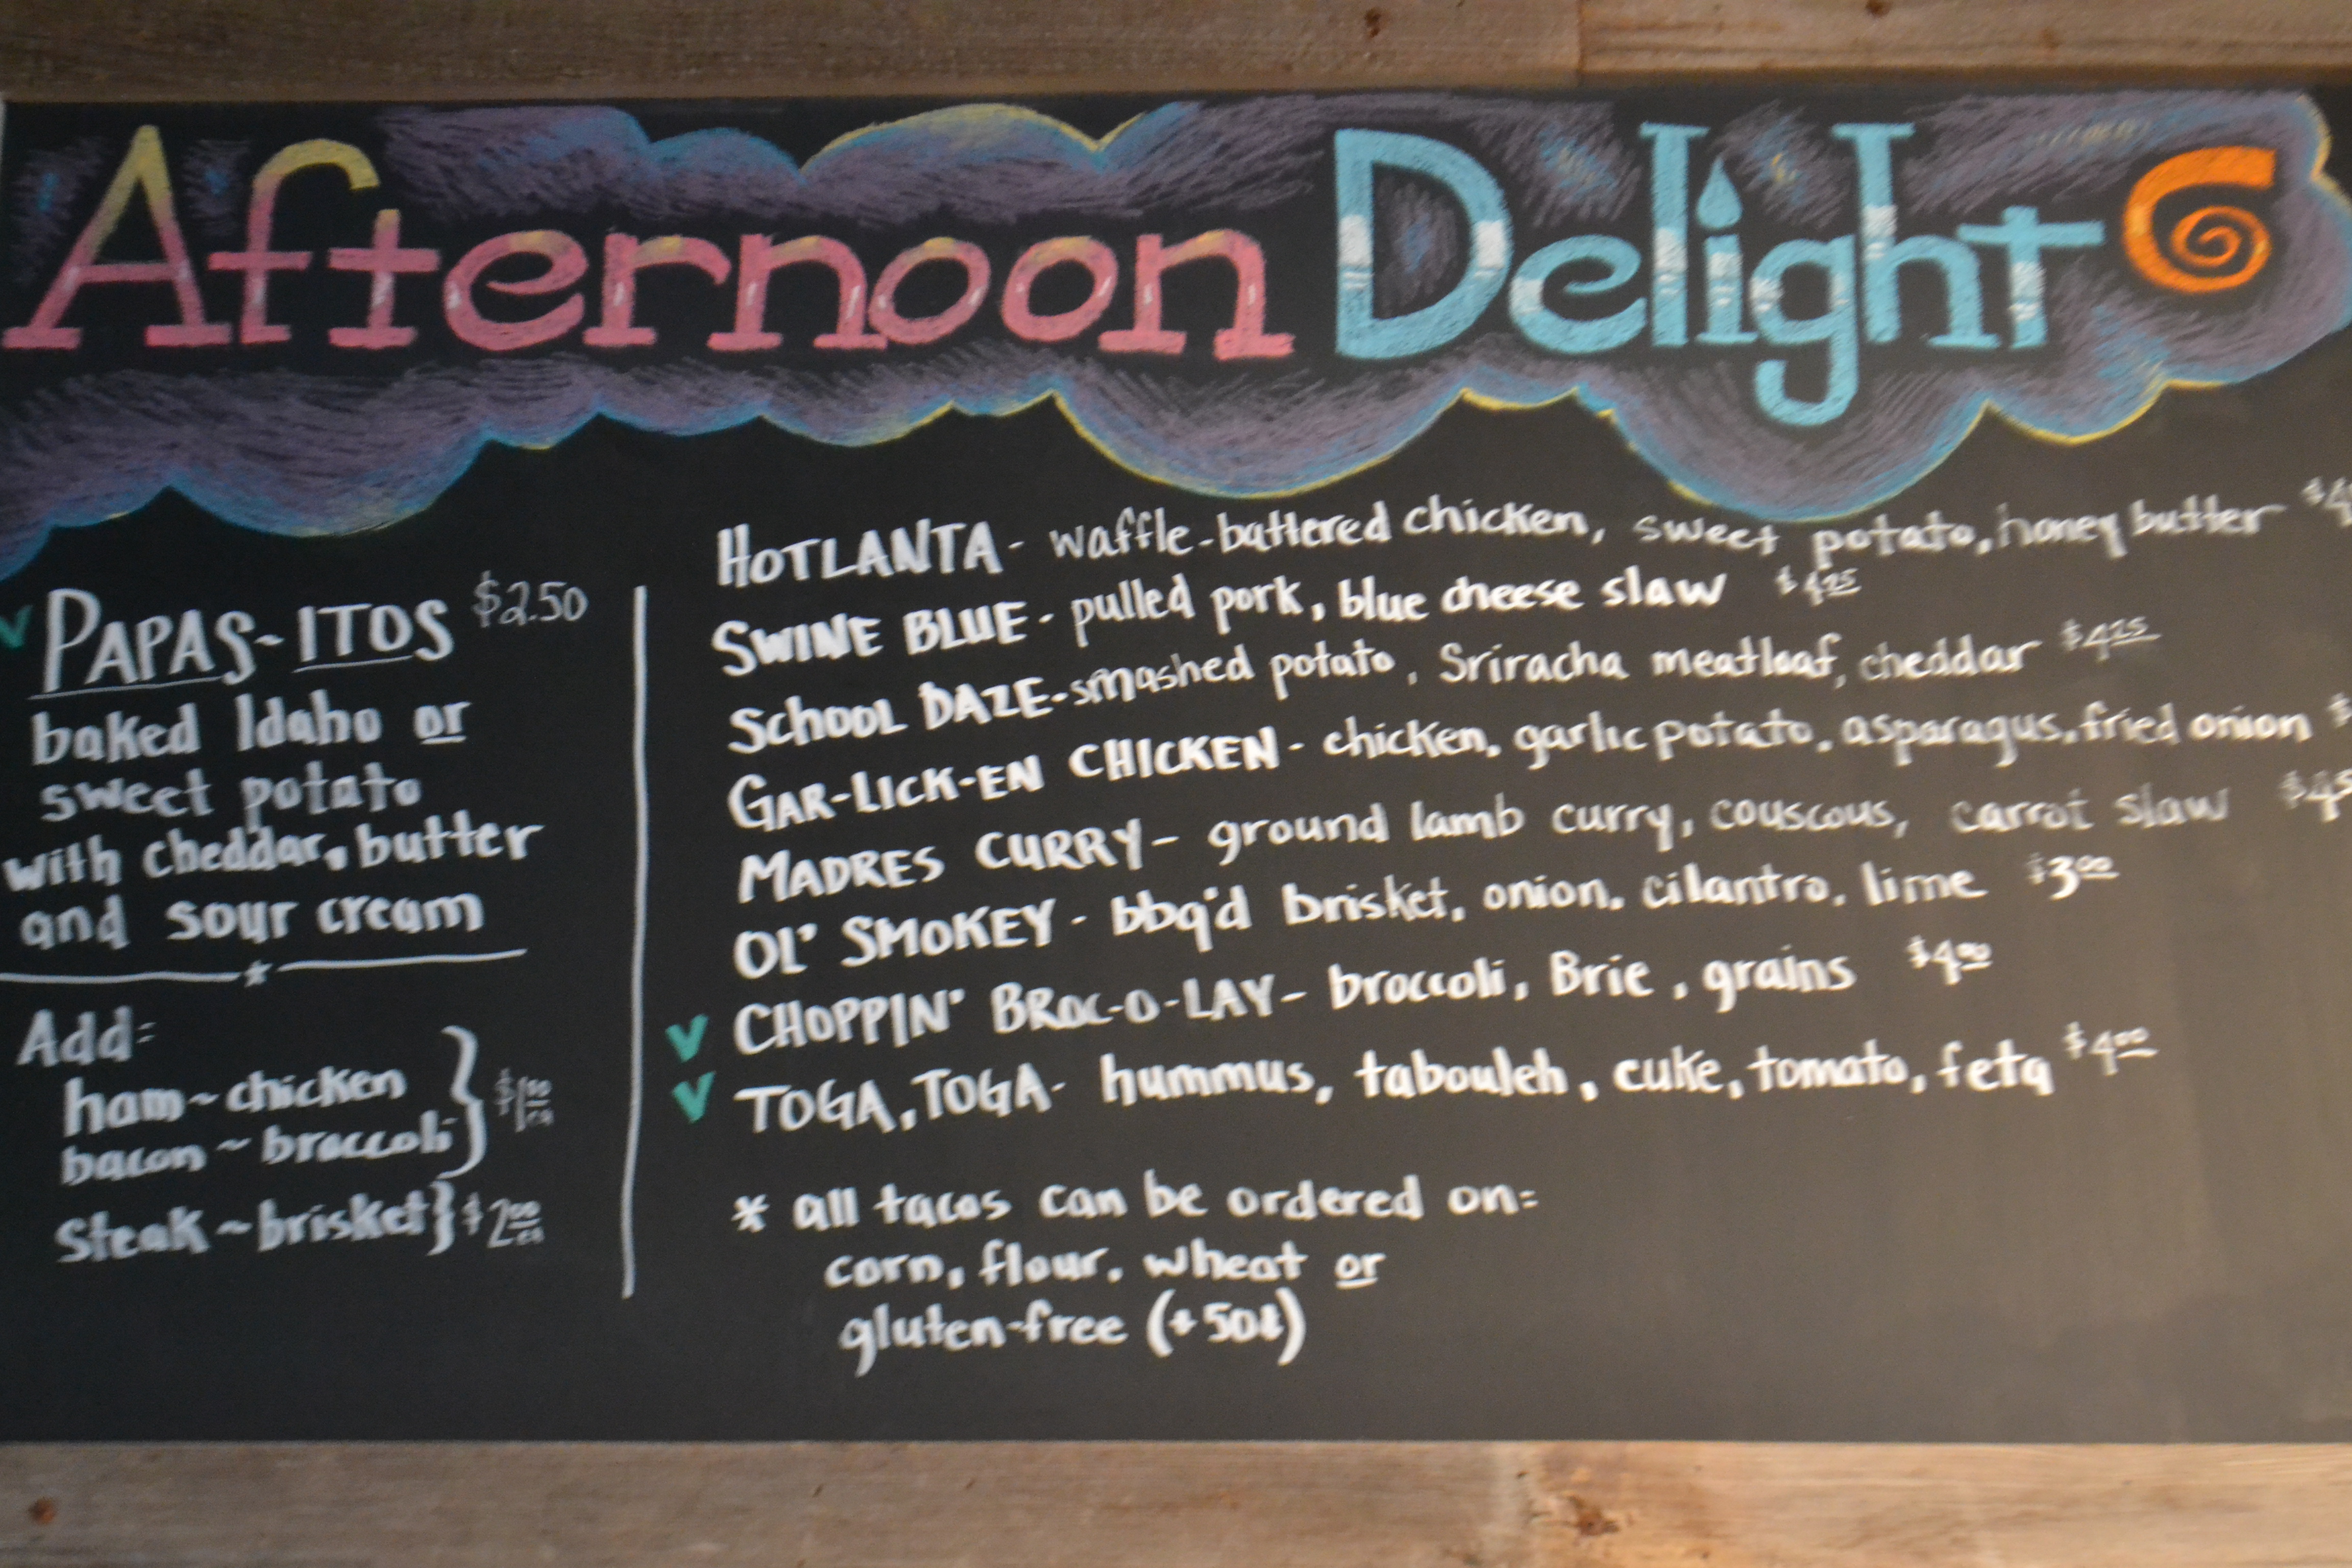 Afternoon Delight
V PAPAS~ITOS $2.50
baked Idaho or
sweet potato
with cheddar, butter
and sour cream
Add:
ham~chicken
bacon~broccoli } $1.00 ea
steak~brisket } $2.00 ea
HOTLANTA - waffle-battered chicken, sweet potato, honey butter
SWINE BLUE - pulled pork, blue cheese slaw $4.25
SCHOOL DAZE - smashed potato, Sriracha meatloaf, cheddar $4.25
GAR-LICK-EN CHICKEN - chicken, garlic potato, asparagus, fried onion
MADRES CURRY - ground lamb curry, couscous, carrot slaw
OL' SMOKEY - bbq'd brisket, onion, cilantro, lime $3.00
V CHOPPIN' BROC-O-LAY - broccoli, Brie, grains $4.00
V TOGA, TOGA - hummus, tabouleh, cuke, tomato, feta $4.00
* all tacos can be ordered on:
corn, flour, wheat or
gluten-free (+50¢)